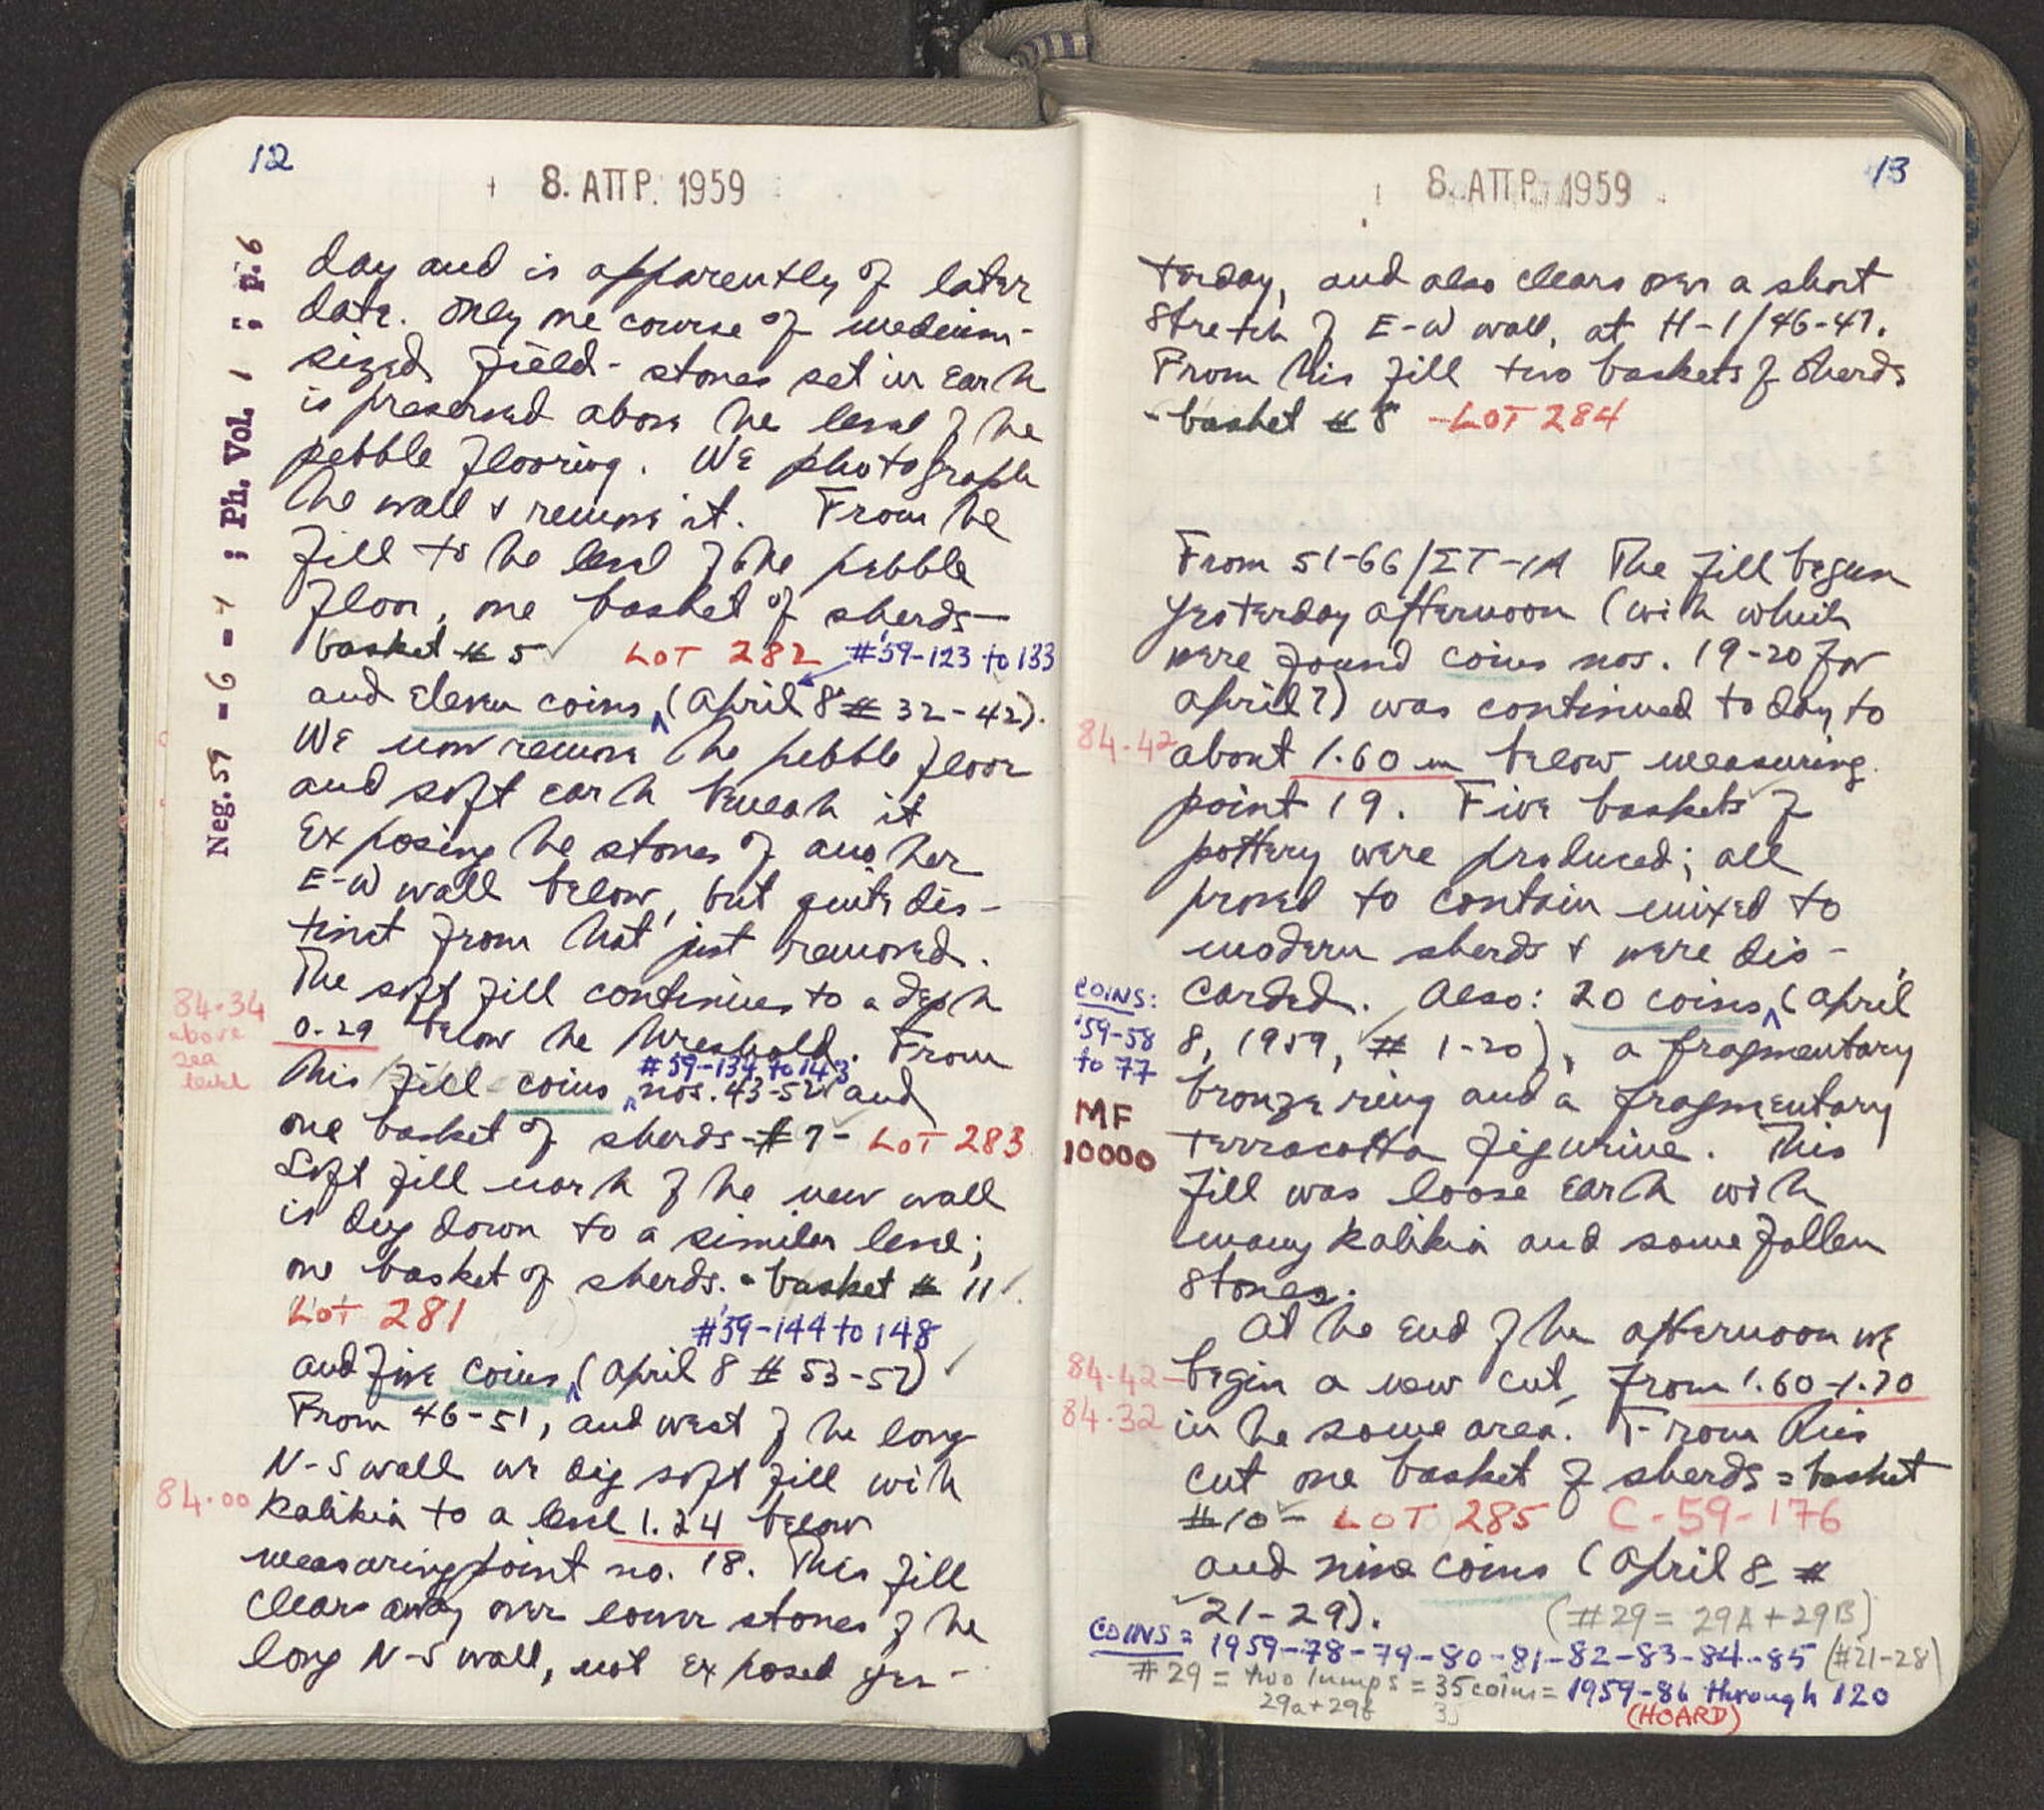 12
8. ΑΠΡ. 1959
Neg. 59 - 6 - 1 ; Ph. Vol. 1 ; p. 6
day and is apparently of later
date. Only one course of medium-
sized field-stones set in earth
is preserved above the level of the
pebble flooring. We photograph
the wall & remove it. From the
fill to the level of the pebble
floor, one basket of sherds -
basket # 5 LOT 282 #'59-123 to 133
and eleven coins (April 8 # 32-42).
We now remove the pebble floor
and soft earth beneath it
exposing the stones of another
E-W wall below, but quite dis-
tinct from that just removed.
The soft fill continues to a depth
84.34 above sea level
0.29 below the threshold. From
#59-134 to 143
this fill coins nos. 43-52 and
one basket of sherds - #7 - LOT 283
Soft fill north of the new wall
is dug down to a similar level;
one basket of sherds. - basket # 11
LOT 281 #'59-144 to 148
and five coins (April 8 # 53-57)
From 46-51, and west of the long
N-S wall we dig soft fill with
84.00
kalikia to a level 1.24 below
measuring point no. 18. This fill
clears away over lower stones of the
long N-S wall, not exposed yes-
13
8. ΑΠΡ. 1959
terday, and also clears over a short
stretch of E-W wall, at H-1/46-47.
From this fill two baskets of sherds
- basket # 8 - LOT 284
From 51-66/ΣΤ-1Α The fill begun
yesterday afternoon (with which
were found coins nos. 19-20 for
April 7) was continued today to
84.42
about 1.60 m below measuring
point 19. Five baskets of
pottery were produced; all
proved to contain mixed to
modern sherds & were dis-
COINS: '59-58 to 77
carded. Also: 20 coins (April
8, 1959, # 1-20), a fragmentary
bronze ring and a fragmentary
MF 10000
terracotta figurine. This
fill was loose earth with
many kalikia and some fallen
stones.
At the end of the afternoon we
84.42-
begin a new cut, from 1.60-1.70
84.32
in the same area. From this
cut one basket of sherds = basket
#10 - LOT 285 C-59-176
and nine coins (April 8 #
21-29). (#29 = 29A + 29B)
COINS = 1959-78-79-80-81-82-83-84-85 (#21-28)
#29 = two lumps = 35 coins = 1959-86 through 120
29a+29b
(HOARD)